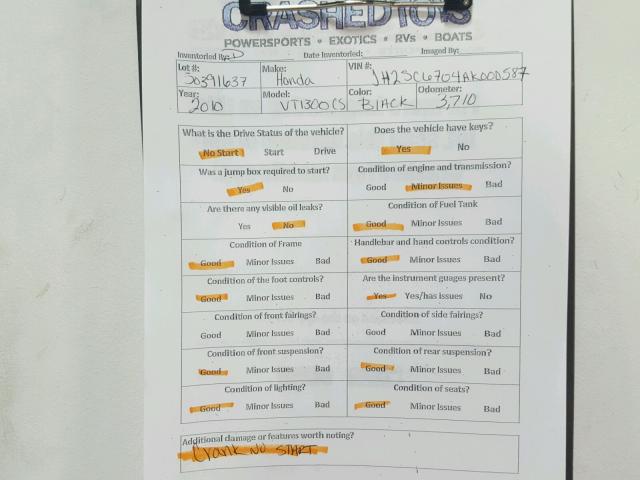 CRASHEDTOYS
POWERSPORTS • EXOTICS • RVs • BOATS
Inventoried By: D Date Inventoried: Imaged By:
Lot #: Make: VIN #:
30391637 Honda JH2SC6704AK000587
Year: Model: Color: Odometer:
2010 VT1300CS BLACK 3,710
What is the Drive Status of the vehicle? Does the vehicle have keys?
No Start Start Drive Yes No
Was a jump box required to start? Condition of engine and transmission?
Yes No Good Minor Issues Bad
Are there any visible oil leaks? Condition of Fuel Tank
Yes No Good Minor Issues Bad
Condition of Frame Handlebar and hand controls condition?
Good Minor Issues Bad Good Minor Issues Bad
Condition of the foot controls? Are the instrument guages present?
Good Minor Issues Bad Yes Yes/has issues No
Condition of front fairings? Condition of side fairings?
Good Minor Issues Bad Good Minor Issues Bad
Condition of front suspension? Condition of rear suspension?
Good Minor Issues Bad Good Minor Issues Bad
Condition of lighting? Condition of seats?
Good Minor Issues Bad Good Minor Issues Bad
Additional damage or features worth noting?
Crank NO START